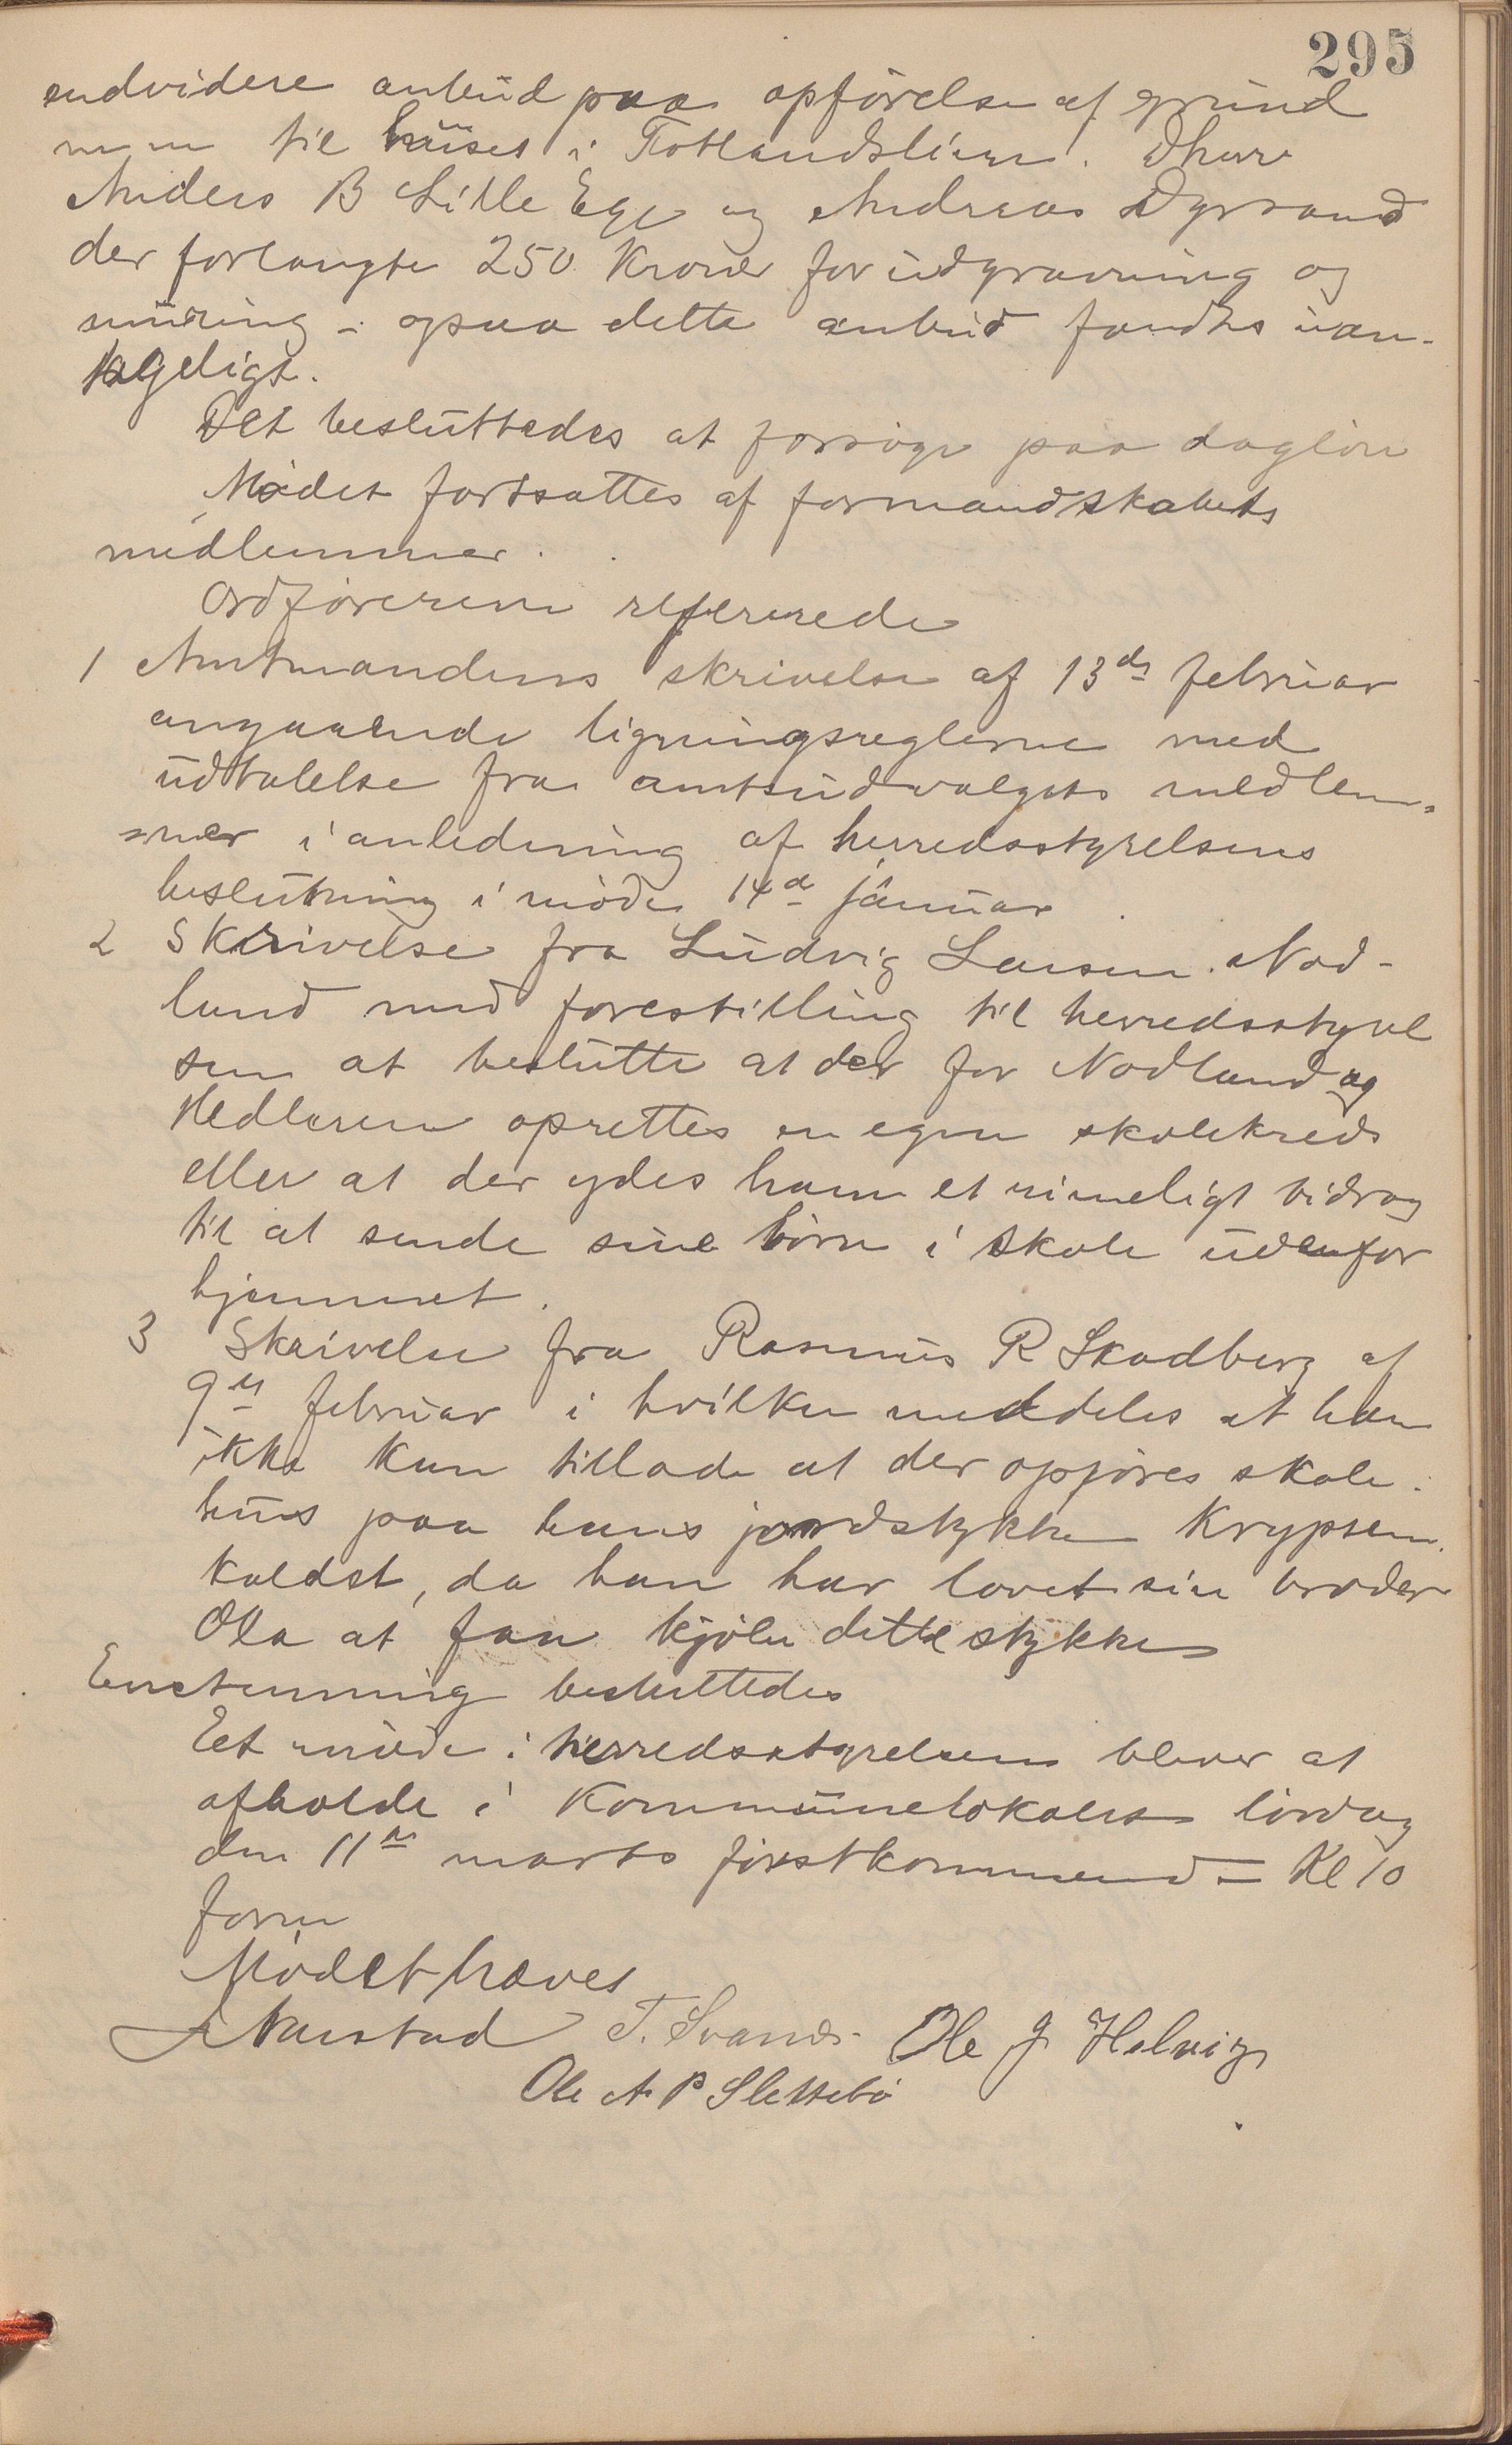 295
endvidere anbud paa opførelse af grund
muren til huset i Totlandslien. Dherr
Anders B Lille Ege og Andreas Dyrsand
der forlangte 250 Kroner for udgravning og
muring – ogsaa dette anbud fandtes uan-
tageligt.
Det besluttedes at forsøge paa dagløn
Mødet fortsattes af formandskabets
medlemmer.
Ordføreren refererede
1 Amtmandens skrivelse af 13de februar
angaaende ligningsreglerne med
udtalelse fra amtsudvalgets medlem-
mer i anledning af herredsstyrelsens
beslutning i møde 14de januar
2 Skrivelse fra Ludvig Larsen Nod-
land med forestilling til herredsstyrel
sen at beslutte at der for Nodland og
Hedleren oprettes en egen skolekreds
eller at der ydes ham et rimeligt bidrag
til at sende sine børn i skole udenfor
hjemmet.
3 Skrivelse fra Rasmus R Skadberg af
9de februar i hvilken meddeles at han
ikke kan tillade at der opføres skole-
hus paa hans jordstykke Krypsen
kaldet, da han har lovet sin broder
Ola at faa kjøbe dette stykke
Enstemmig besluttedes
Eet møde i herredsstyrelsen bliver at
afholde i Kommunelokalet lørdag
den 11te marts førstkommend – Kl 10
form
Mødet hæves
A Aarstad T. Svanes Ole J Helvig
Ole A P Slettebø